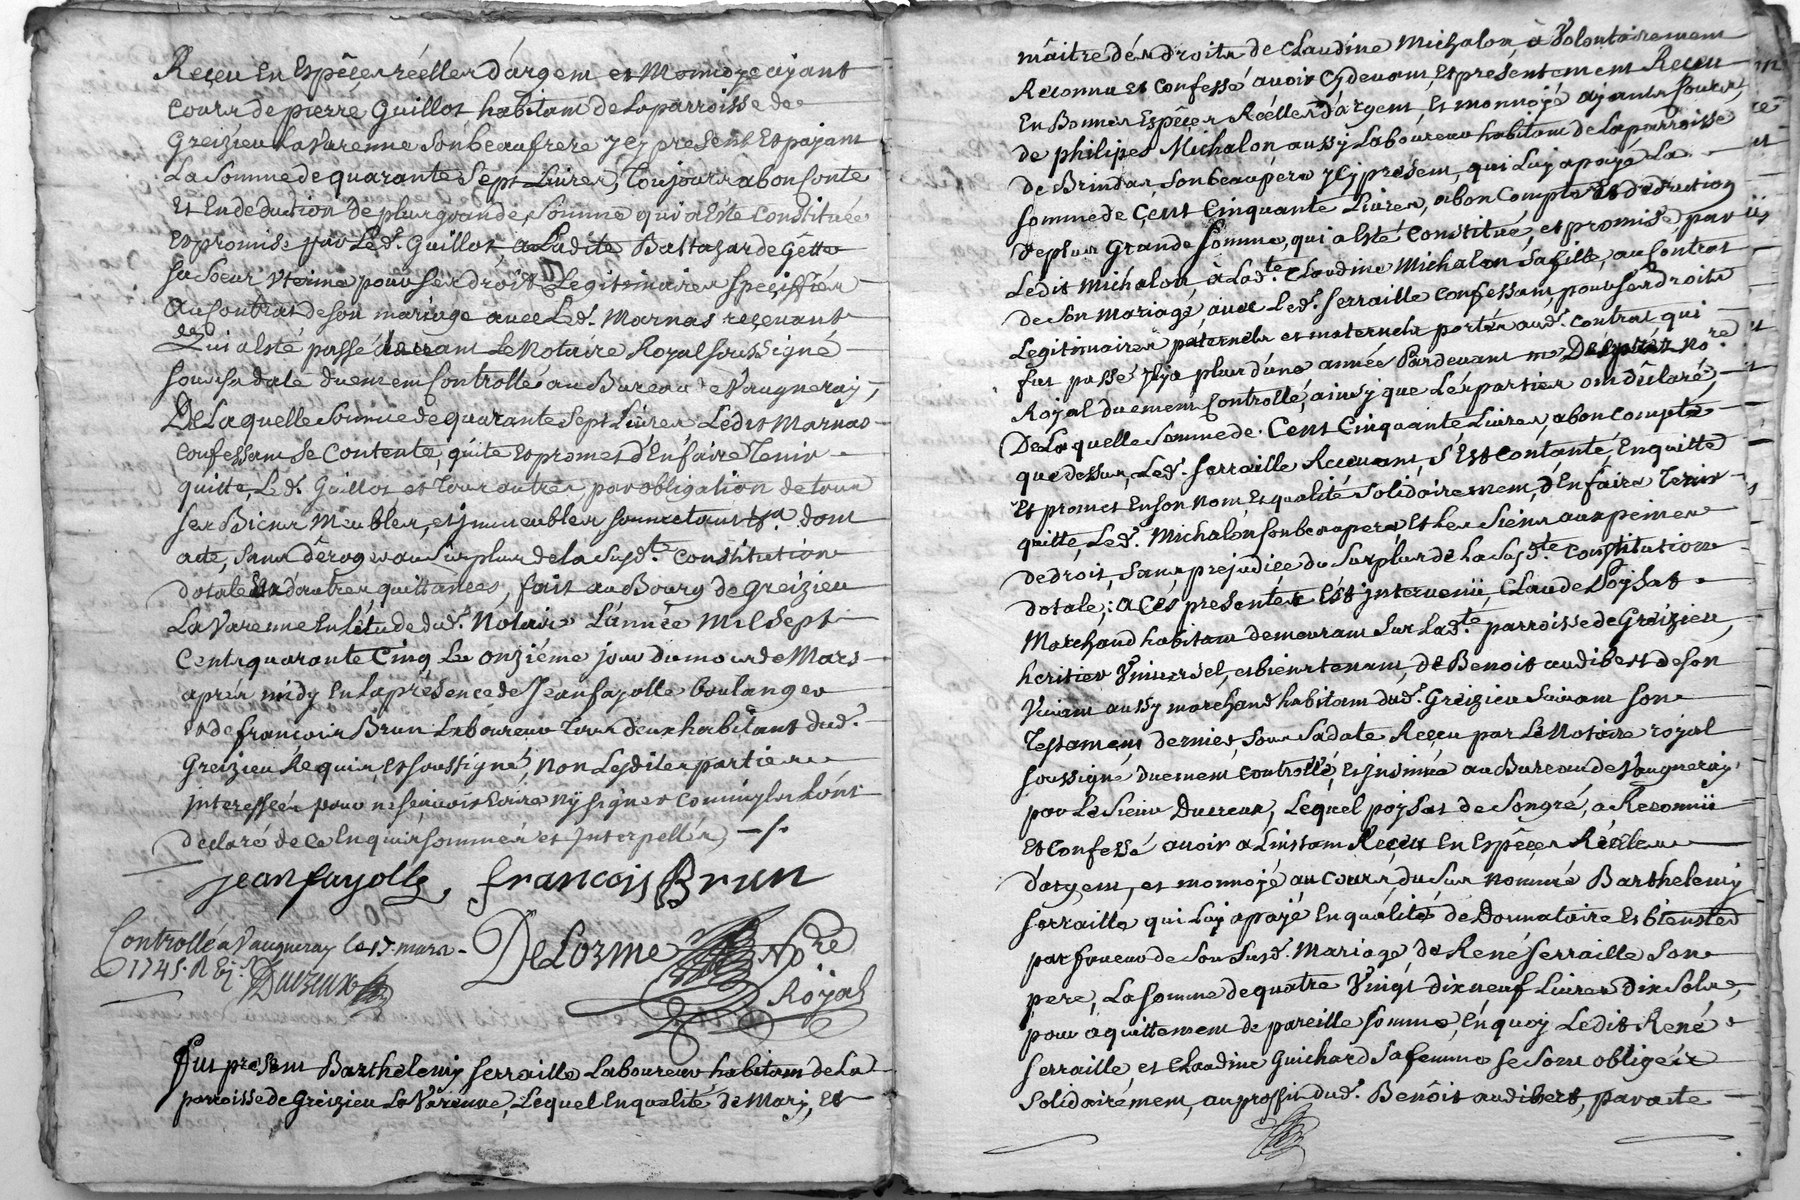 Reçeu en espêçes réelles d'argent et monnoye ayant
cours de pierre Guillot habitant de la parroisse de
Greizieu La Varenne son beaufrere ycy present et payant
La somme de quarante sept Livres, toujours a bon conte
et en deduction de plus grande somme qui a esté constituée
et promise par Led. Guillot, a Ladite Baltazarde
sa soeur vterine pour ses droits Legitimaires speciffiés
au contrat de son mariage avec Led. Marnas reçevant
qui a esté passé Le Notaire Royal soussigné
sous sa date duement controllé au Bureau de Vaugneray,
De Laquelle somme de quarante sept Livres Ledit Marnas
confessant se contente, quite et promet d'en faire tenir
quitte, Led. Guillot et tous autres, par obligation de tous
ses Biens Meubles, et jmmeubles dont
acte, sans déroger au surplus de la susd.te constitution
dotale d'autres quittances, fait au Bourg de Greizieu
La Varenne en L'étude dud. Notaire L'année Mil sept
Cents quarante Cinq Le onziéme jour du mois de Mars
aprés midy en La présence de Jean fayolle boulanger
et de francois Brun Laboureur tous deux habitant dud.
Greizieu Requis, et soussigné, Non Lesdites parties
jnteressées pour ne sçavoir écrire ny signer comm'yls L'ont
déclaré de ce enquis sommés et jnterpellés
jean fayolle, francois Brun
Controllé a Vaugneray le 17 mars DeLorme No.re
1745. R Ducreux Róyal
fut present Barthelemy ferraille Laboureur habitant de La
parroisse de Greizieu La Varenne, Lequel en qualité de Mary, et
mâitre dés droits de Claudine Michalon, à Volontairement
Reconnu et confessé avoir cy devant, et presentement Reçeu
En Bonnes Espêçes Réelles d'argent, et monnoye ayants Cours,
de philipes Michalon aussy Laboureur habitant de La parroisse
de Brindas son beaupere ycy présent, qui Luy a payé La
somme de Cent Cinquante Livres, a bon compte et deduction
de plus Grande somme, qui a esté constitué, et promise, par
Ledit Michalon, à Lad.te Claudine Michalon sa fille, au contrat
de son mariage, avec Led. ferraille confessant, pour ses droits
Legitimaires paternels et maternels portés aud. contrat qui
fut passé yl y a plus d'une année Pardevant me No.re
Royal duement controllé, ainsy que Les parties ont déclaré,
De La quelle somme de Cent Cinquante Livres, a bon compte
que dessus, Led. ferraille Recevant, s'est contanté, en quitte
et promet en son nom, et qualité solidairement, d'en faire tenir
quitte, Led. Michalon son beaupere, et les siens aux peines
de droit, sans préjudice du surplus de La susd.te constitution
dotale; a Cés presentes est jntervenü, Claude Poÿsat
Marchand habitant demeurant sur Lad.te parroisse de Greizieu,
heritier Vniversel, et bienstenant, de Benoit audibert de son
Vivant aussy marchand habitant dud. Greizieu suivant son
Testament dernier, sous sa date Reçeu par Le Notaire royal
soussigné duement controllé, et jnsinué au Bureau de Vaugneray,
par Le sieur Ducreux, Lequel poÿsat de son gré, a Reconnü
et Confessé avoir a L'instant Reçeu en Espêçes Réelles
d'argent, et monnoye au cours du sus nommé Barthelemy
ferraille qui Luy a payé en qualité de Donnataire et bienst.ed
par faveur de son susd. Mariage de René ferraille son
pere, La somme de quatre Vingt dix neuf Livres dix sols,
pour aquittement de pareille somme, en quoy Ledit René
ferraille et Claudine Guichard sa femme se sont obligés
solidairément, au proffit dud. Benôit audibert, par acte